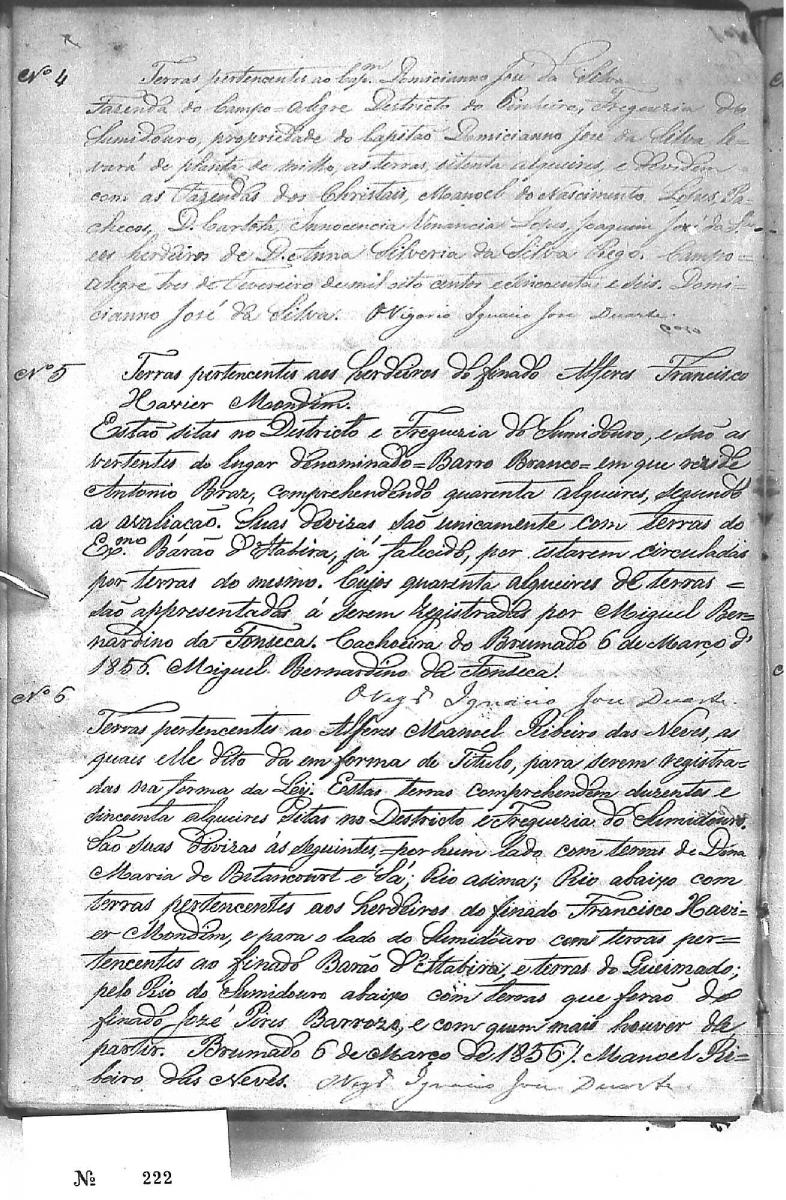 Nº 4 Terras pertencentes ao Capm. Domicianno José da Silva
Fazenda do Campo=alegre Districto do Pinheiro, Freguezia do
Sumidouro, propriedade do Capitão Domicianno José da Silva le-
vará de planta de milho, as terras, sitenta alqueires, e devidem
com as Fazendas dos Christais, Manoel do Nascimento Lopes Pa-
checos, D. Carlota, Innocencia Venancia Lopes, Joaquim José da Sa.
eos herdeiros de D. Anna Silveria da Silva Rego. Campo=
alegre tres de Fevereiro de mil oito centos e cincoenta e seis. Domi-
cianno José da Silva. O Vigario Ignacio José Duarte.
Nº 5 Terras pertencentes aos herdeiros do finado Alferes Francisco
Xavier Mondim.
Estão sitas no Districto e Freguezia do Sumidouro, e são as
vertentes do lugar denominado=Barro Branco=em que reside
Antonio Braz, comprehendendo quarenta alqueires, segundo
a avaliação. Suas devizas são unicamente com terras do
Exmo. Bárão d'Itabira, já falecido, por estarem circuladas
por terras do mesmo. Cujos quarenta alqueires de terras =
são appresentadas á serem registradas por Miguel Ber=
nardino da Fonseca. Cachoeira do Brumado 6 de Março d'
1856. Miguel Bernardino da Fonseca.
O Vigrº Ignacio José Duarte.
Nº 6
Terras pertencentes ao Alferes Manoel Ribeiro das Neves, as
quais elle dito dá em forma de Titulo, para serem registra=
das na forma da Ley. Estas terras comprehendem duzentos e
sincoenta alqueires sitas no Districto e Freguezia do Sumidouro.
São suas devizas ás seguintes,=por hum lado com terras de Dona
Maria de Betancourt e Sá; Rio asima; Rio abaixo com
terras pertencentes aos herdeiros do finado Francisco Xavi-
er Mondim, e para o lado do Sumidouro com terras per=
tencentes ao finado Barão d'Itabira, e terras do Queimado;
pelo Rio do Sumidouro abaixo com terras que forão do
finado José Pires Barrozo, e com quem mais houver de
partir. Brumado 6 de Março de 1856 /. Manoel Ri-
beiro das Neves. O Vigrº Ignacio José Duarte.
Nº 222